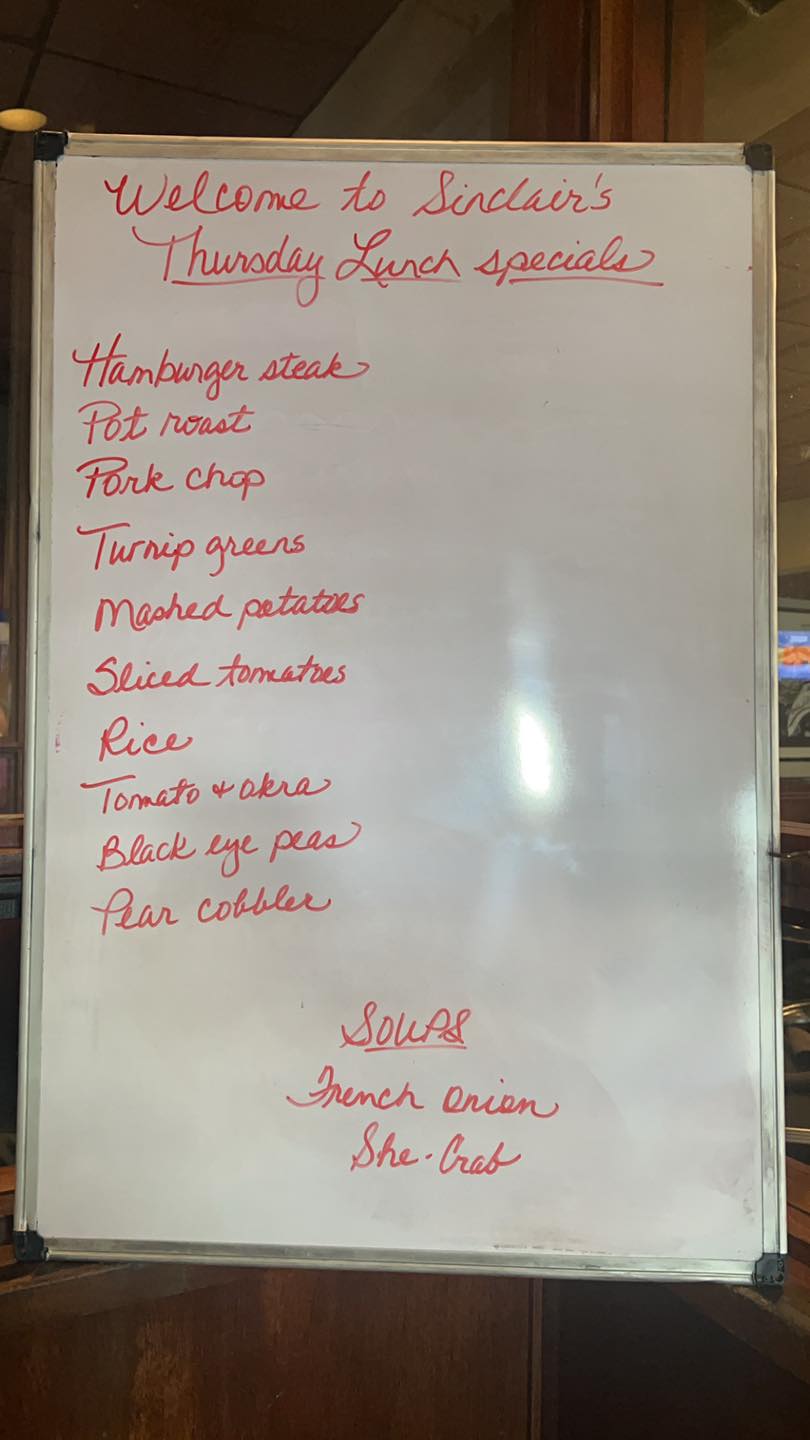 Welcome to Sinclair's
Thursday Lunch specials
Hamburger steak
Pot roast
Pork chop
Turnip greens
Mashed potatoes
Sliced tomatoes
Rice
Tomato + okra
Black eye peas
Pear cobbler
SOUPS
French onion
She-Crab